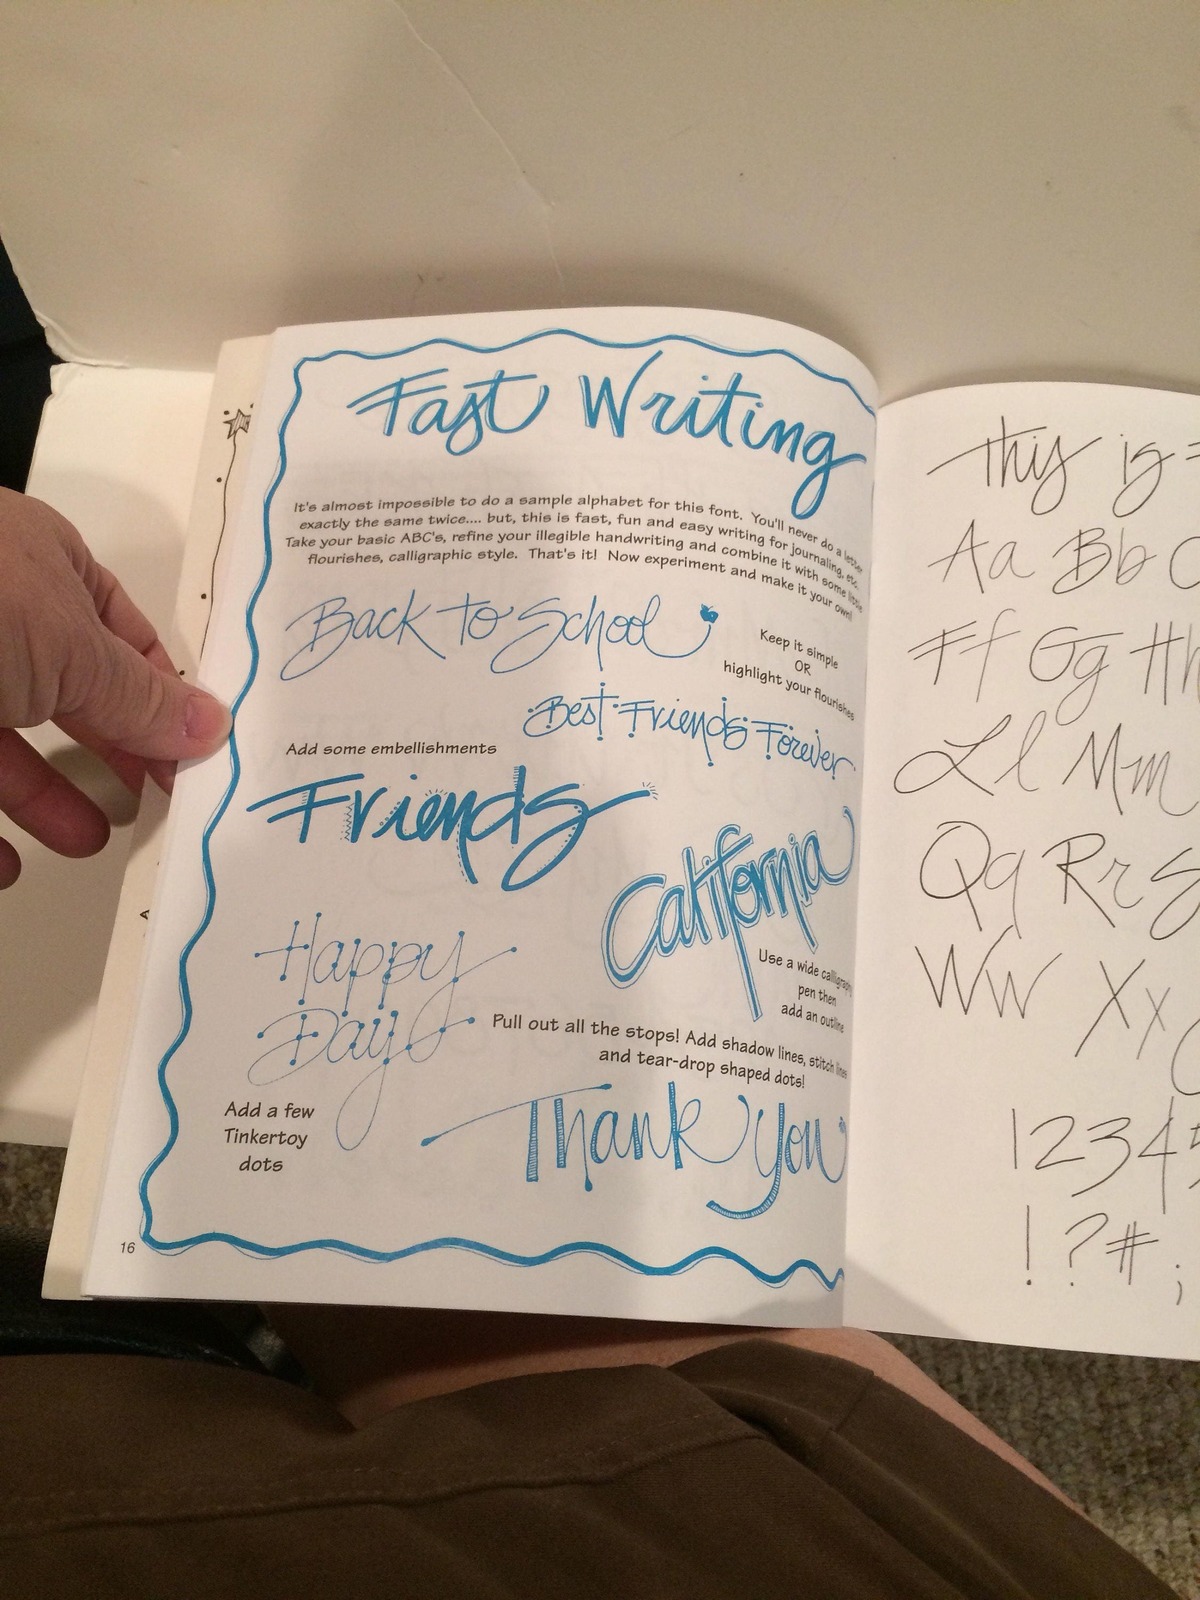 Fast Writing
It's almost impossible to do a sample alphabet for this font. You'll never do a letter
exactly the same twice.... but, this is fast, fun and easy writing for journaling, etc.
Take your basic ABC's, refine your illegible handwriting and combine it with some little
flourishes, calligraphic style. That's it! Now experiment and make it your own!
Back to School
Keep it simple
OR
highlight your flourishes
Best Friends Forever
Add some embellishments
Friends
California
Use a wide calligraphy
pen then
add an outline
Happy
Day
Pull out all the stops! Add shadow lines, stitch lines
and tear-drop shaped dots!
Add a few
Tinkertoy
dots
Thank You
16
This is
Aa Bb
Ff Gg Hh
Ll Mm
Qq Rr S
Ww Xx
1234
! ? # ;